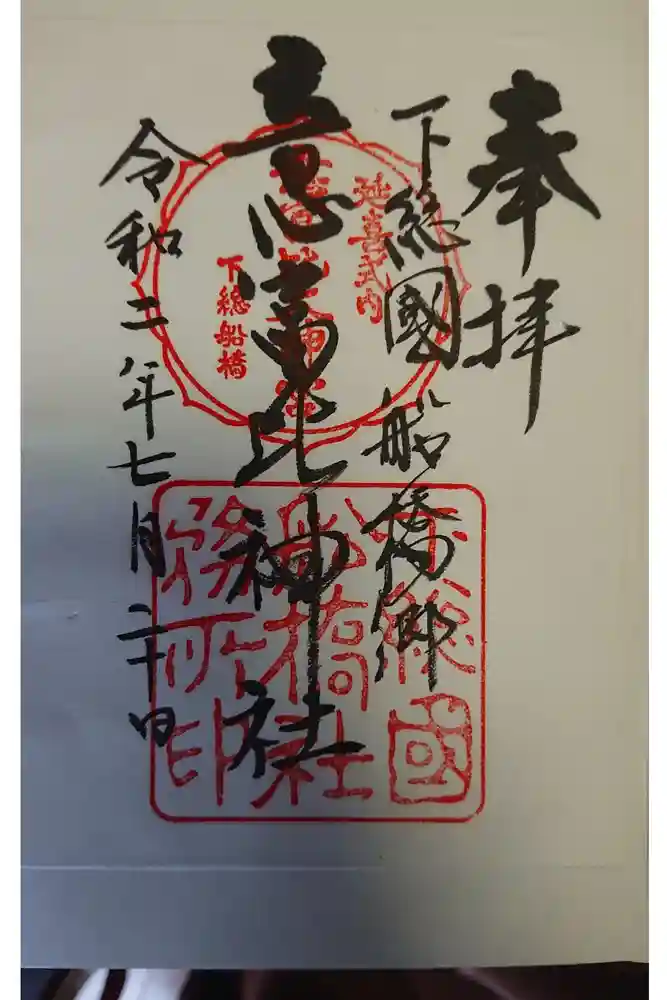 奉拝
下総國船橋郷
意富比神社
令和二年七月二十日
延喜式内
下総船橋
下総國
船橋社
務所印